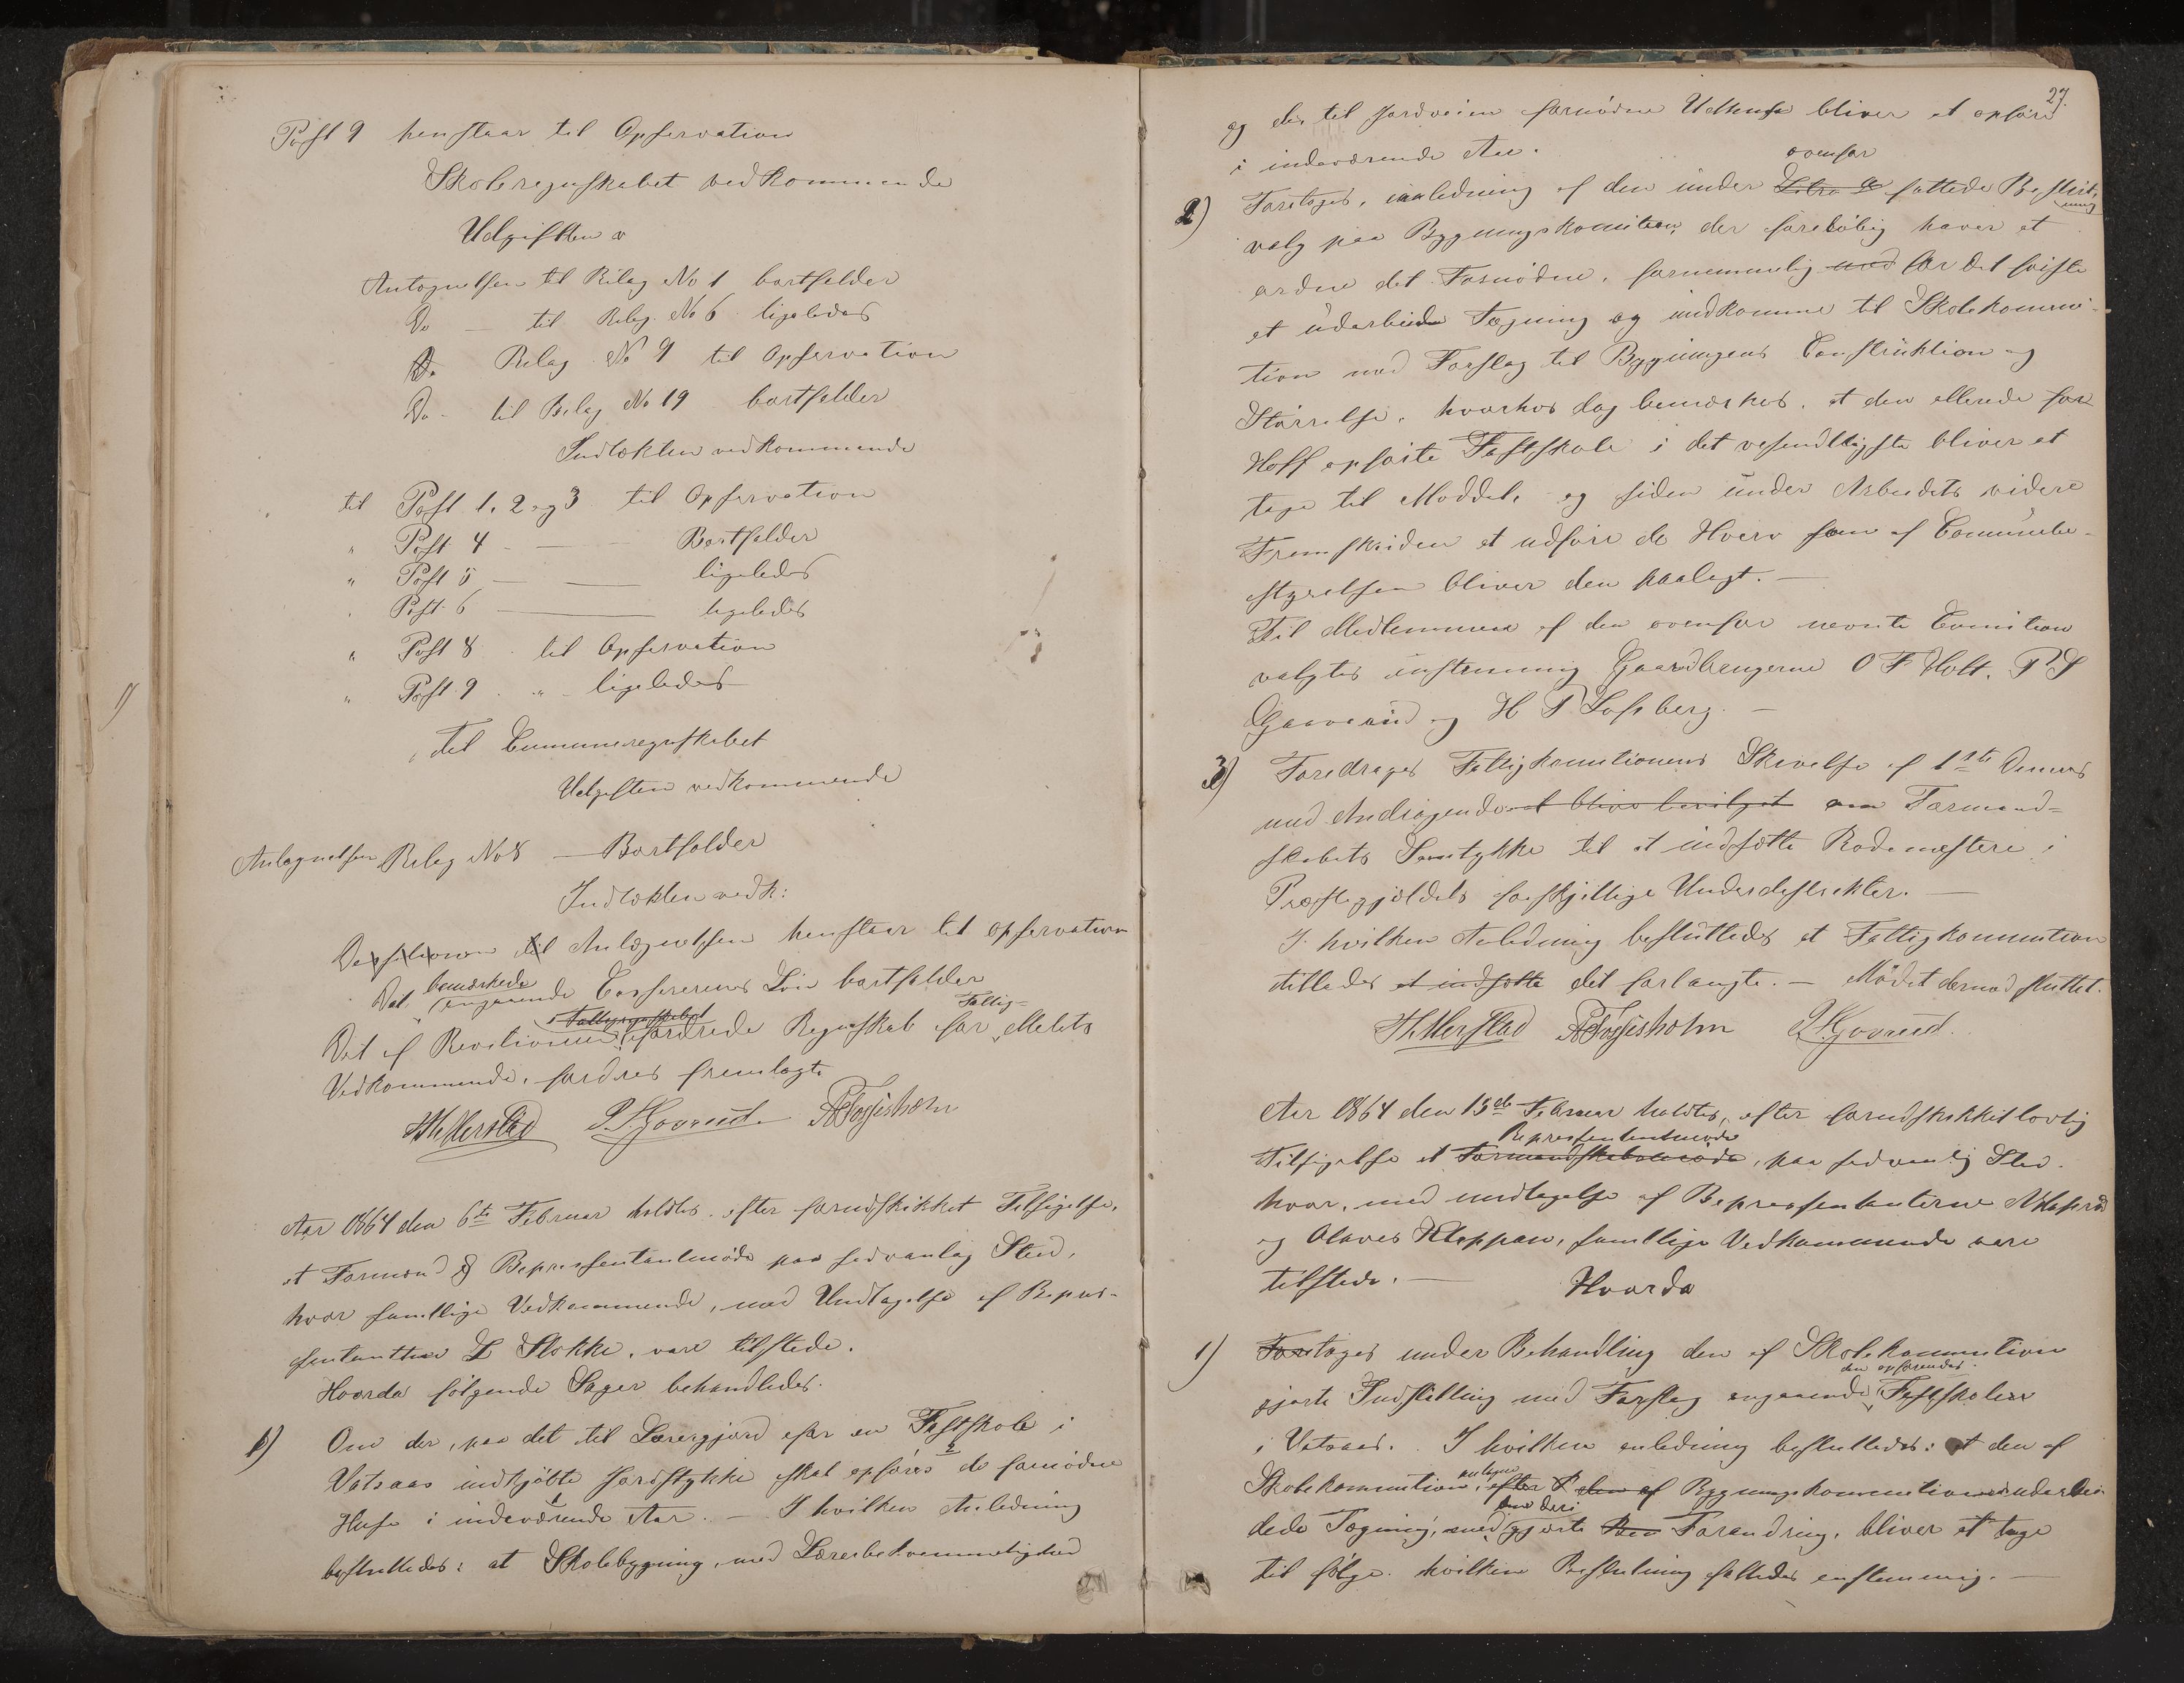 Post 9 henstaar til Opservation
Skoleregnskabet vedkommende
Udgiften
Antegnelsen til Bilag No 1 bortfalder
Do — til Bilag No 6 ligeledes
Do Bilag No 9 til Opservation
Do - til Bilag No 19 bortfalder
Indtækten vedkommende
til Post 1, 2 og 3 til Opservation
" Post 4 — Bortfalder
" Post 5 — ligeledes
" Post 6 — ligeledes
" Post 8 til Opservation
" Post 9 " ligeledes
til Communeregnskabet
Udgiften vedkommende
Antegnelsen Bilag No 8 — Bortfalder
Indtækten vedk:
til Antegnelsen henstaar til Opservation
Det bemærkede angaaende Cassererens Løn bortfalder
Det af Revisionen i Fattigregnskabet fordrede Regnskab for Fattig-
Vedkommende, fordres fremlagt
H Mersted P. Gjovrud A Torjisholm
Aar 1864 den 6te Februar holdtes efter forudskikket Tilsigelse,
et Formand & Repræsentantmøde paa sedvanlig Sted,
hvor samtlige Vedkommende, med Undtagelse af Repræ-
sentanten L Stokke, vare tilstede.
Hvorda følgende Sager behandledes.
1) Om der, paa det til Lærergjord for en Fastskole i
Vatsaas indkjøbte Jordstykke skal opføres de fornødne
Huse i indeværende Aar. — I hvilken Anledning
besluttedes: at Skolebygning, med Lærerbekvemmelighed
27.
og de til Jordveien fornødne Udhuse bliver at opføre
i indeværende Aar.
2) Foretoges, i anledning af den under Litra ovenfor fattede Beslut-
ning
valg paa Bygningskomiteen, der foreløbig haver at
ordne det Fornødne, fornemmelig med for det første
at udarbeide Tegning og indkomme til Skolekommi-
tion med Forslag til Bygningens Construktion og
Størrelse, hvorhos dog bemærkes, at den allerede for
Hoff opførte Fastskole i det vesendtligste bliver at
tage til Moddel, og siden under Arbeidets videre
Fremskriden at udføre de Hverv som af Communebe-
styrelsen bliver den paalagt. —
Til Medlemmer af den ovenfor nevnte Comition
valgtes enstemmig Gaardbrugerne O F Holt, P S
Gjovrud og H P Lofsberg. —
3) Foredroges Fattigkomitionens Skrivelse af 1ste Dennes
med Andragende at blive bevilget om Formand-
skabets Samtykke til at indsætte Rodemestere i
Præstegjeldets forskjellige Underdistrikter. —
I hvilken Anledning besluttedes at Fattigkommition
tillades at indsætte det forlangte. — Mødet dermed sluttet.
H Mersted A Torjisholm P. Gjovrud.
Aar 1864 den 13de Februar holdtes, efter forudskikket lovlig
Tilsigelse et Formandskabsmøde Repræsentantmøde, paa sedvanlig Sted.
hvor, med undtagelse af Repræsentanterne
og Olaves Kleppan, samtlige Vedkommende vare
tilstede. — Hvorda
1) Foretoges under Behandling den af Skolekommition
gjorte Indstilling med Forslag angaaende den opførendes Fastskolen
i Vatsaas. I hvilken anledning besluttedes: at den af
Skolekommition antagne efter den af Bygningskommitionen udarbei-
dede Tegning, med den deri gjorte Forandring, bliver at tage
til følge. hvilken Beslutning fattedes enstemmig. —